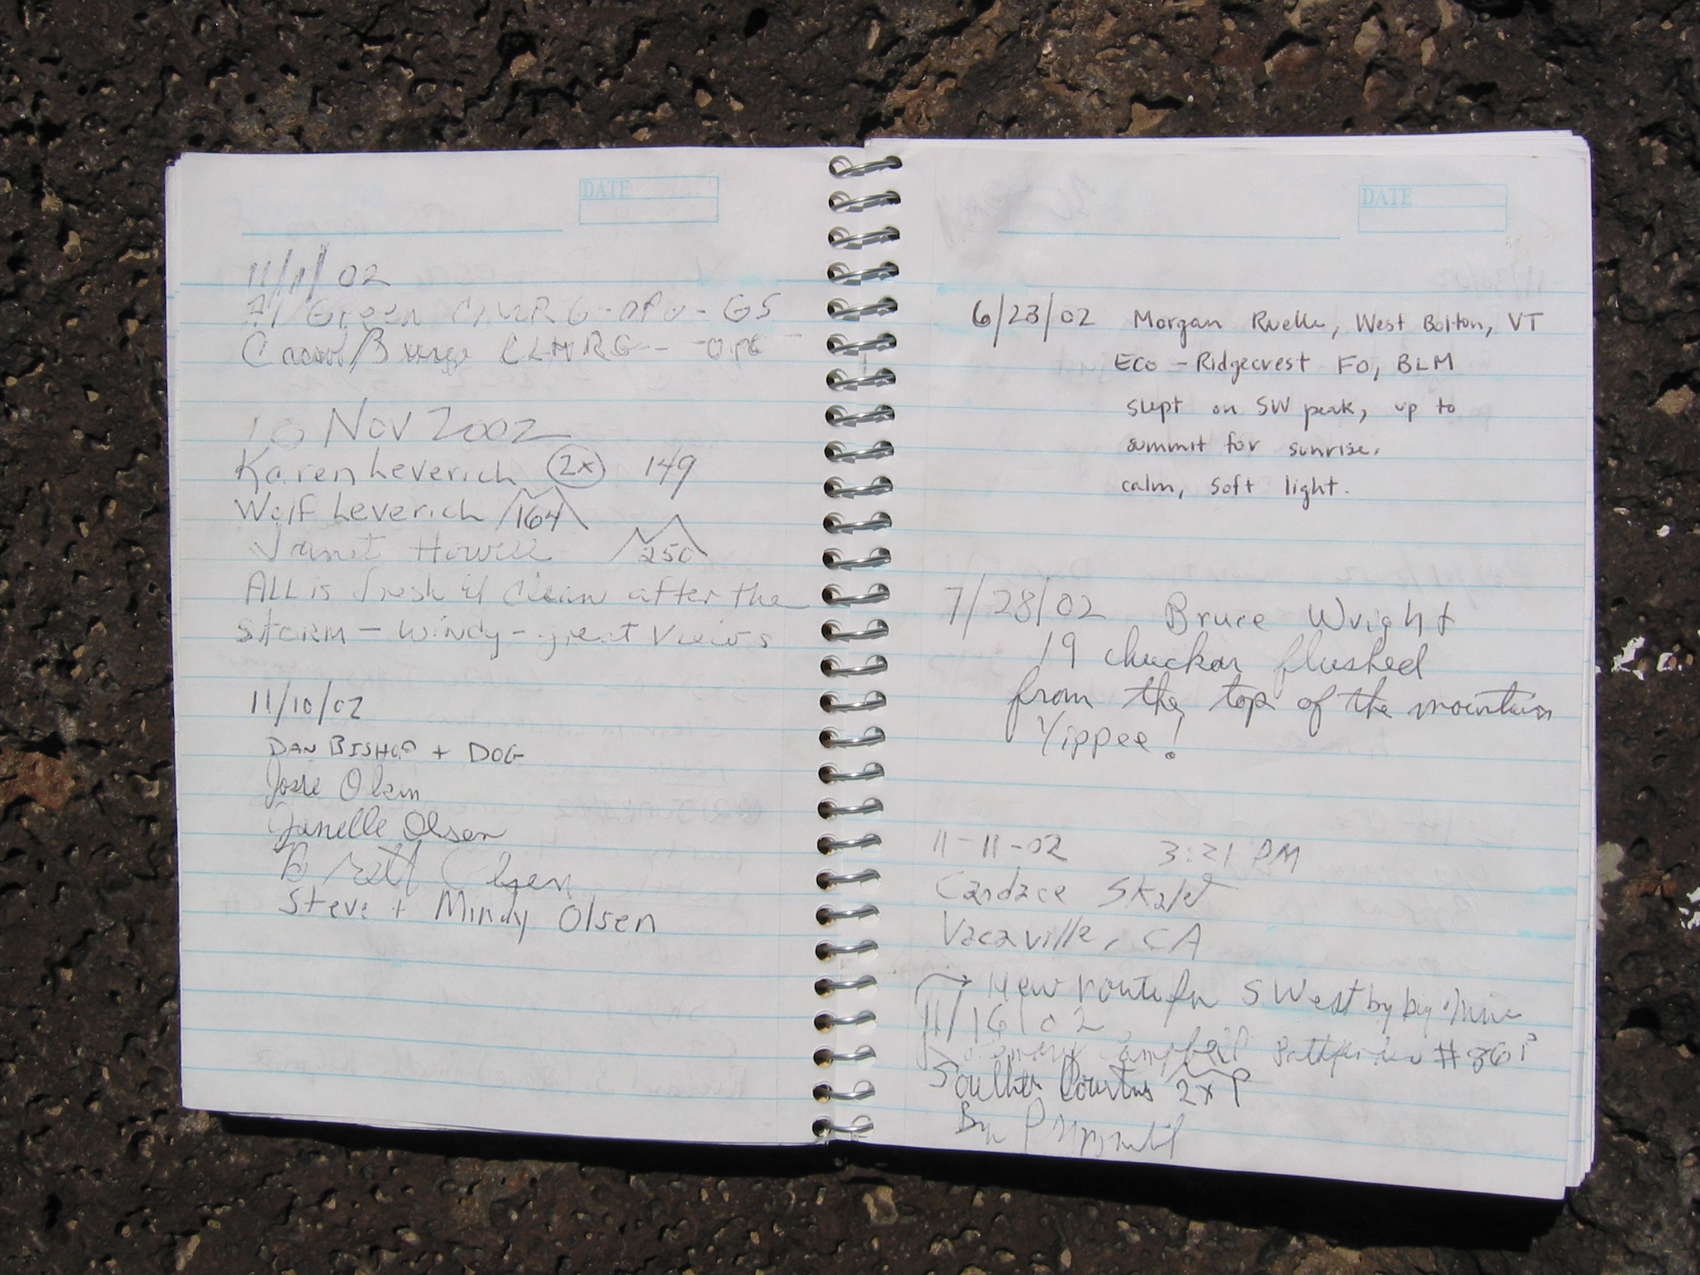 DATE
11/11/02
Al Green CLMRG - OPG - GS
CLMRG - OPG
10 Nov 2002
Karen Leverich 2x 149
Wolf Leverich 164
Janet Howell 250
ALL is fresh & clean after the
storm - windy - great views
11/10/02
DAN BISHOP + DOG
Josie Olsen
Janelle Olsen
Brett Olsen
Steve + Mindy Olsen
DATE
6/23/02 Morgan Ruelle, West Bolton, VT
Eco - Ridgecrest FO, BLM
slept on SW peak, up to
summit for sunrise.
calm, soft light.
7/28/02 Bruce Wright
19 chuckar flushed
from the top of the mountain
Yippee!
11-11-02 3:21 PM
Candace Skalet
Vacaville, CA
New route for S West by
11/16/02
Campbell Pathfinder #361
2x
By